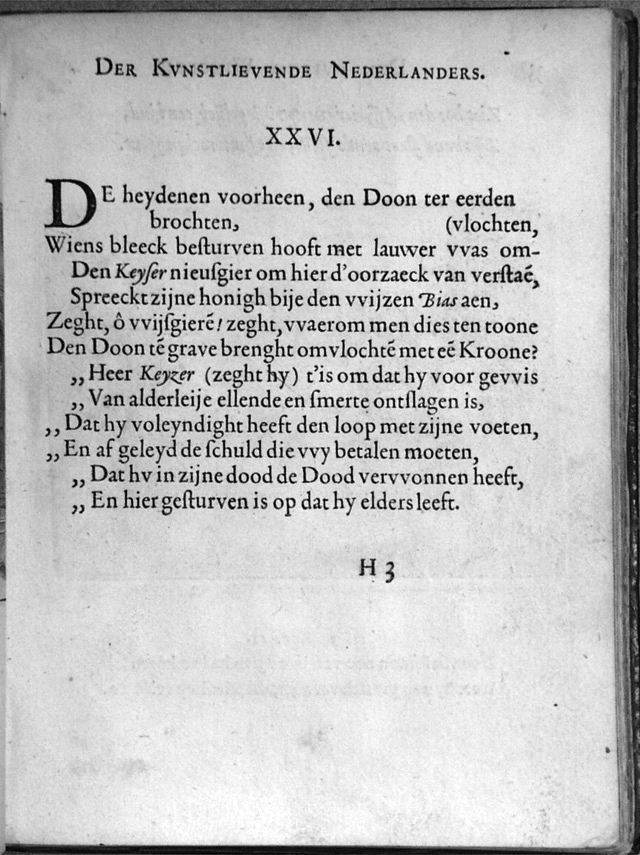 DER KVNSTLIEVENDE NEDERLANDERS.
XXVI.
DE heydenen voorheen, den Doon ter eerden
brochten, (vlochten,
Wiens bleeck beſturven hooft met lauwer vvas om-
Den Keyſer nieuſgier om hier d'oorzaeck van verſtaẽ,
Spreeckt zijne honigh bije den vvijzen Bias aen,
Zeght, ô vvijſgierẽ! zeght, vvaerom men dies ten toone
Den Doon tẽ grave brenght omvlochtẽ met eẽ Kroone?
,, Heer Keyzer (zeght hy) t'is om dat hy voor gevvis
,, Van alderleije ellende en ſmerte ontſlagen is,
,, Dat hy voleyndight heeft den loop met zijne voeten,
,, En af geleyd de ſchuld die vvy betalen moeten,
,, Dat hv in zijne dood de Dood vervvonnen heeft,
,, En hier geſturven is op dat hy elders leeft.
H 3